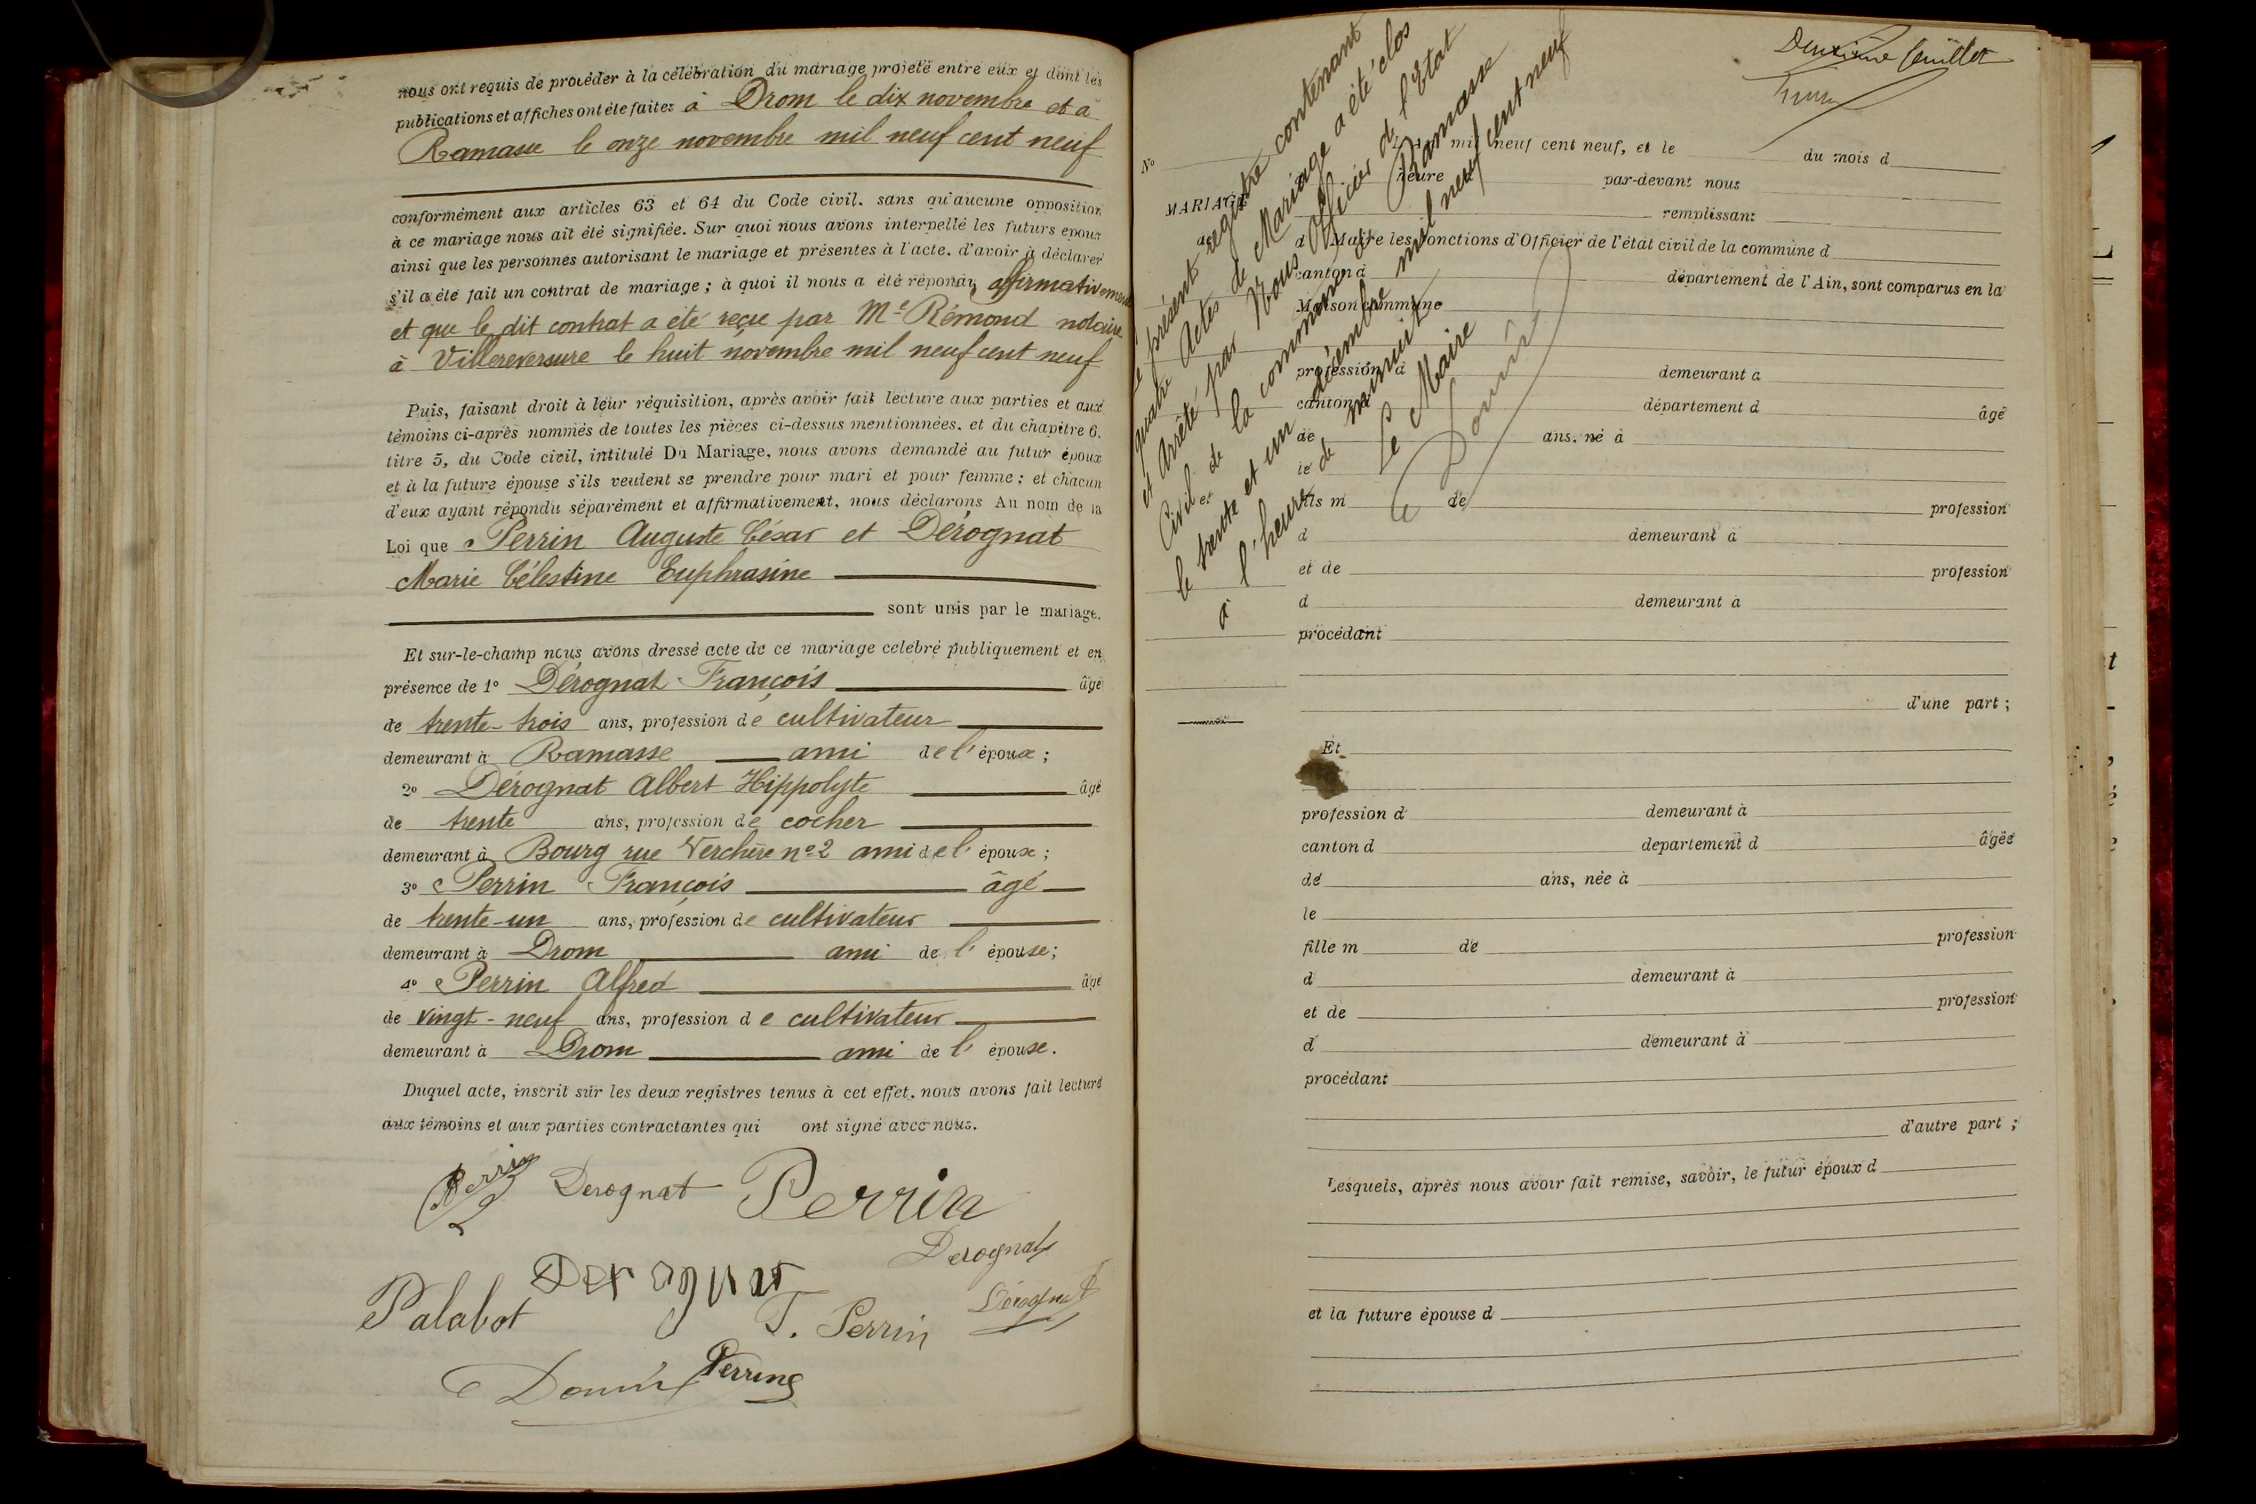 nous ont requis de procéder à la célébration du mariage projeté entre eux et dont les
publications et affiches ont été faites à Drom le dix novembre et à
Ramasse le onze novembre mil neuf cent neuf
conformément aux articles 63 et 64 du Code civil, sans qu'aucune opposition
à ce mariage nous ait été signifiée. Sur quoi nous avons interpellé les futurs époux
ainsi que les personnes autorisant le mariage et présentes à l'acte, d'avoir à déclarer
s'il a été fait un contrat de mariage ; à quoi il nous a été répondu affirmativement
et que le dit contrat a été reçu par Me Rémond notaire
à Villereversure le huit novembre mil neuf cent neuf
Puis, faisant droit à leur réquisition, après avoir fait lecture aux parties et aux
témoins ci-après nommés de toutes les pièces ci-dessus mentionnées, et du chapitre 6,
titre 5, du Code civil, intitulé Du Mariage, nous avons demandé au futur époux
et à la future épouse s'ils veulent se prendre pour mari et pour femme ; et chacun
d'eux ayant répondu séparément et affirmativement, nous déclarons Au nom de la
Loi que Perrin Auguste César et Dérognat
Marie Célestine Euphrasine
sont unis par le mariage.
Et sur-le-champ nous avons dressé acte de ce mariage célébré publiquement et en
présence de 1º Dérognat François âgé
de trente-trois ans, profession de cultivateur
demeurant à Ramasse ami de l'épouse ;
2º Dérognat Albert Hippolyte âgé
de trente ans, profession de cocher
demeurant à Bourg rue Verchère nº 2 ami de l'épouse ;
3º Perrin François âgé
de trente-un ans, profession de cultivateur
demeurant à Drom ami de l'épouse ;
4º Perrin Alfred âgé
de vingt-neuf ans, profession de cultivateur
demeurant à Drom ami de l'épouse.
Duquel acte, inscrit sur les deux registres tenus à cet effet, nous avons fait lecture
aux témoins et aux parties contractantes qui ont signé avec nous.
Perrin Derognat Perrin
Derognat
Derognat
Palabot F. Perrin Dérognat
Perrin
Deuxième feuillet
Le présent registre contenant
quatre Actes de Mariage a été clos
et Arrêté par Nous Officier d l'Etat
Civil de la commune de Ramasse
le trente et un décembre mil neuf cent neuf
à l'heure de minuit
Le Maire
Nº
MARIAGE
de
et
mil neuf cent neuf, et le du mois d
heure par-devant nous
remplissant
d Maire les fonctions d'Officier de l'état civil de la commune d
canton d département de l'Ain, sont comparus en la
Maison commune
profession d demeurant à
canton d département d âgé
de ans, né à
le
fils m de profession
d demeurant à
et de profession
d demeurant à
procédant
d'une part ;
Et
profession d demeurant à
canton d département d âgée
de ans, née à
le
fille m de profession
d demeurant à
et de profession
d demeurant à
procédant
d'autre part ;
Lesquels, après nous avoir fait remise, savoir, le futur époux d
et la future épouse d